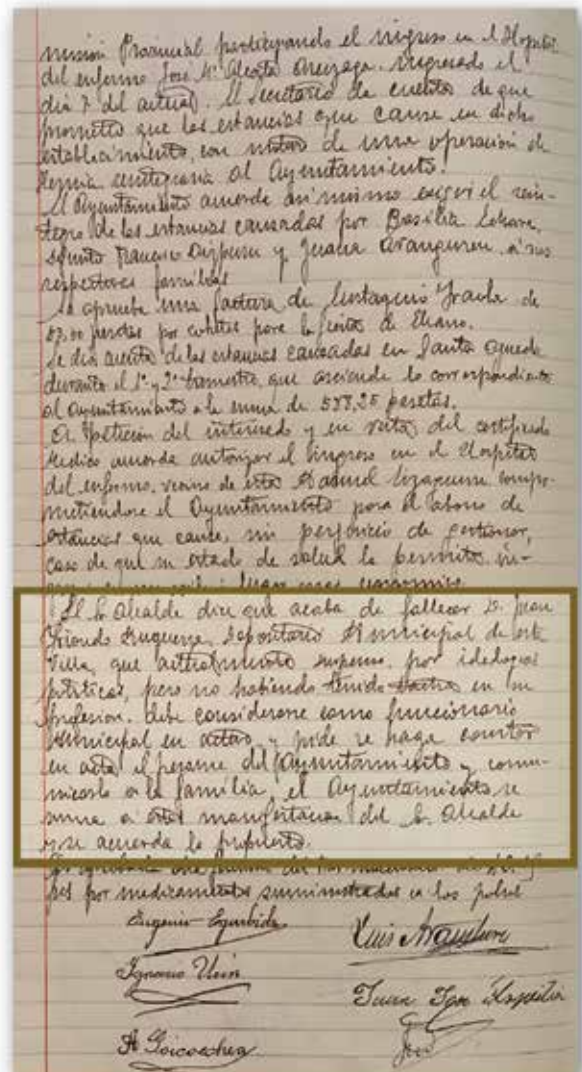 misión Provincial participando el ingreso en el Hospital
del enfermo José Mª Alcorta Arrizaga. ingresado el
dia 7 del actual. El Secretario da cuenta de que
prometió que las estancias que cause en dicho
establecimiento, con motivo de una operación de
Hernia
al Ayuntamiento.
El Ayuntamiento acuerda asi mismo exigir el rein-
tegro de las estancias causadas por Basilia
Francisco y Juana Aranguren a sus
respectivas familias
Se aprueba una factura de Eustaquio de
pesetas por cohetes para la fiesta de Elcano.
Se dió cuenta de las estancias causadas en Santa Agueda
durante el 1º y 2º trimestre, que asciende lo correspondiente
al Ayuntamiento a la suma de 538,25 pesetas.
A petición del interesado y en vista del certificado
Médico acuerda autorizar el ingreso en el Hospital
del enfermo, vecino de esta Manuel compro-
metiendose el Ayuntamiento para el abono de
estancias que cause, sin perjuicio de gestionar,
caso de que su estado de salud le permita in-
lugar mas economico
El Sr Alcalde dice que acaba de fallecer D. Juan
Depositario Municipal de esta
Villa, que actualmente suspenso por ideologias
politicas, pero no habiendo tenido en su
profesion. debe considerarse como funcionario
Municipal en activo, y pide se haga constar
en acta el pesame del Ayuntamiento y comu-
nicarlo a la familia, el Ayuntamiento se
suma a estas manifestacion del Sr. Alcalde
y se acuerda lo propuesto.
pts por medicamentos suministrados a los pobres
Eugenio Egurbide
Luis Aramburu
Ignacio Urin
Juan José Azpeitia
A Goicoechea